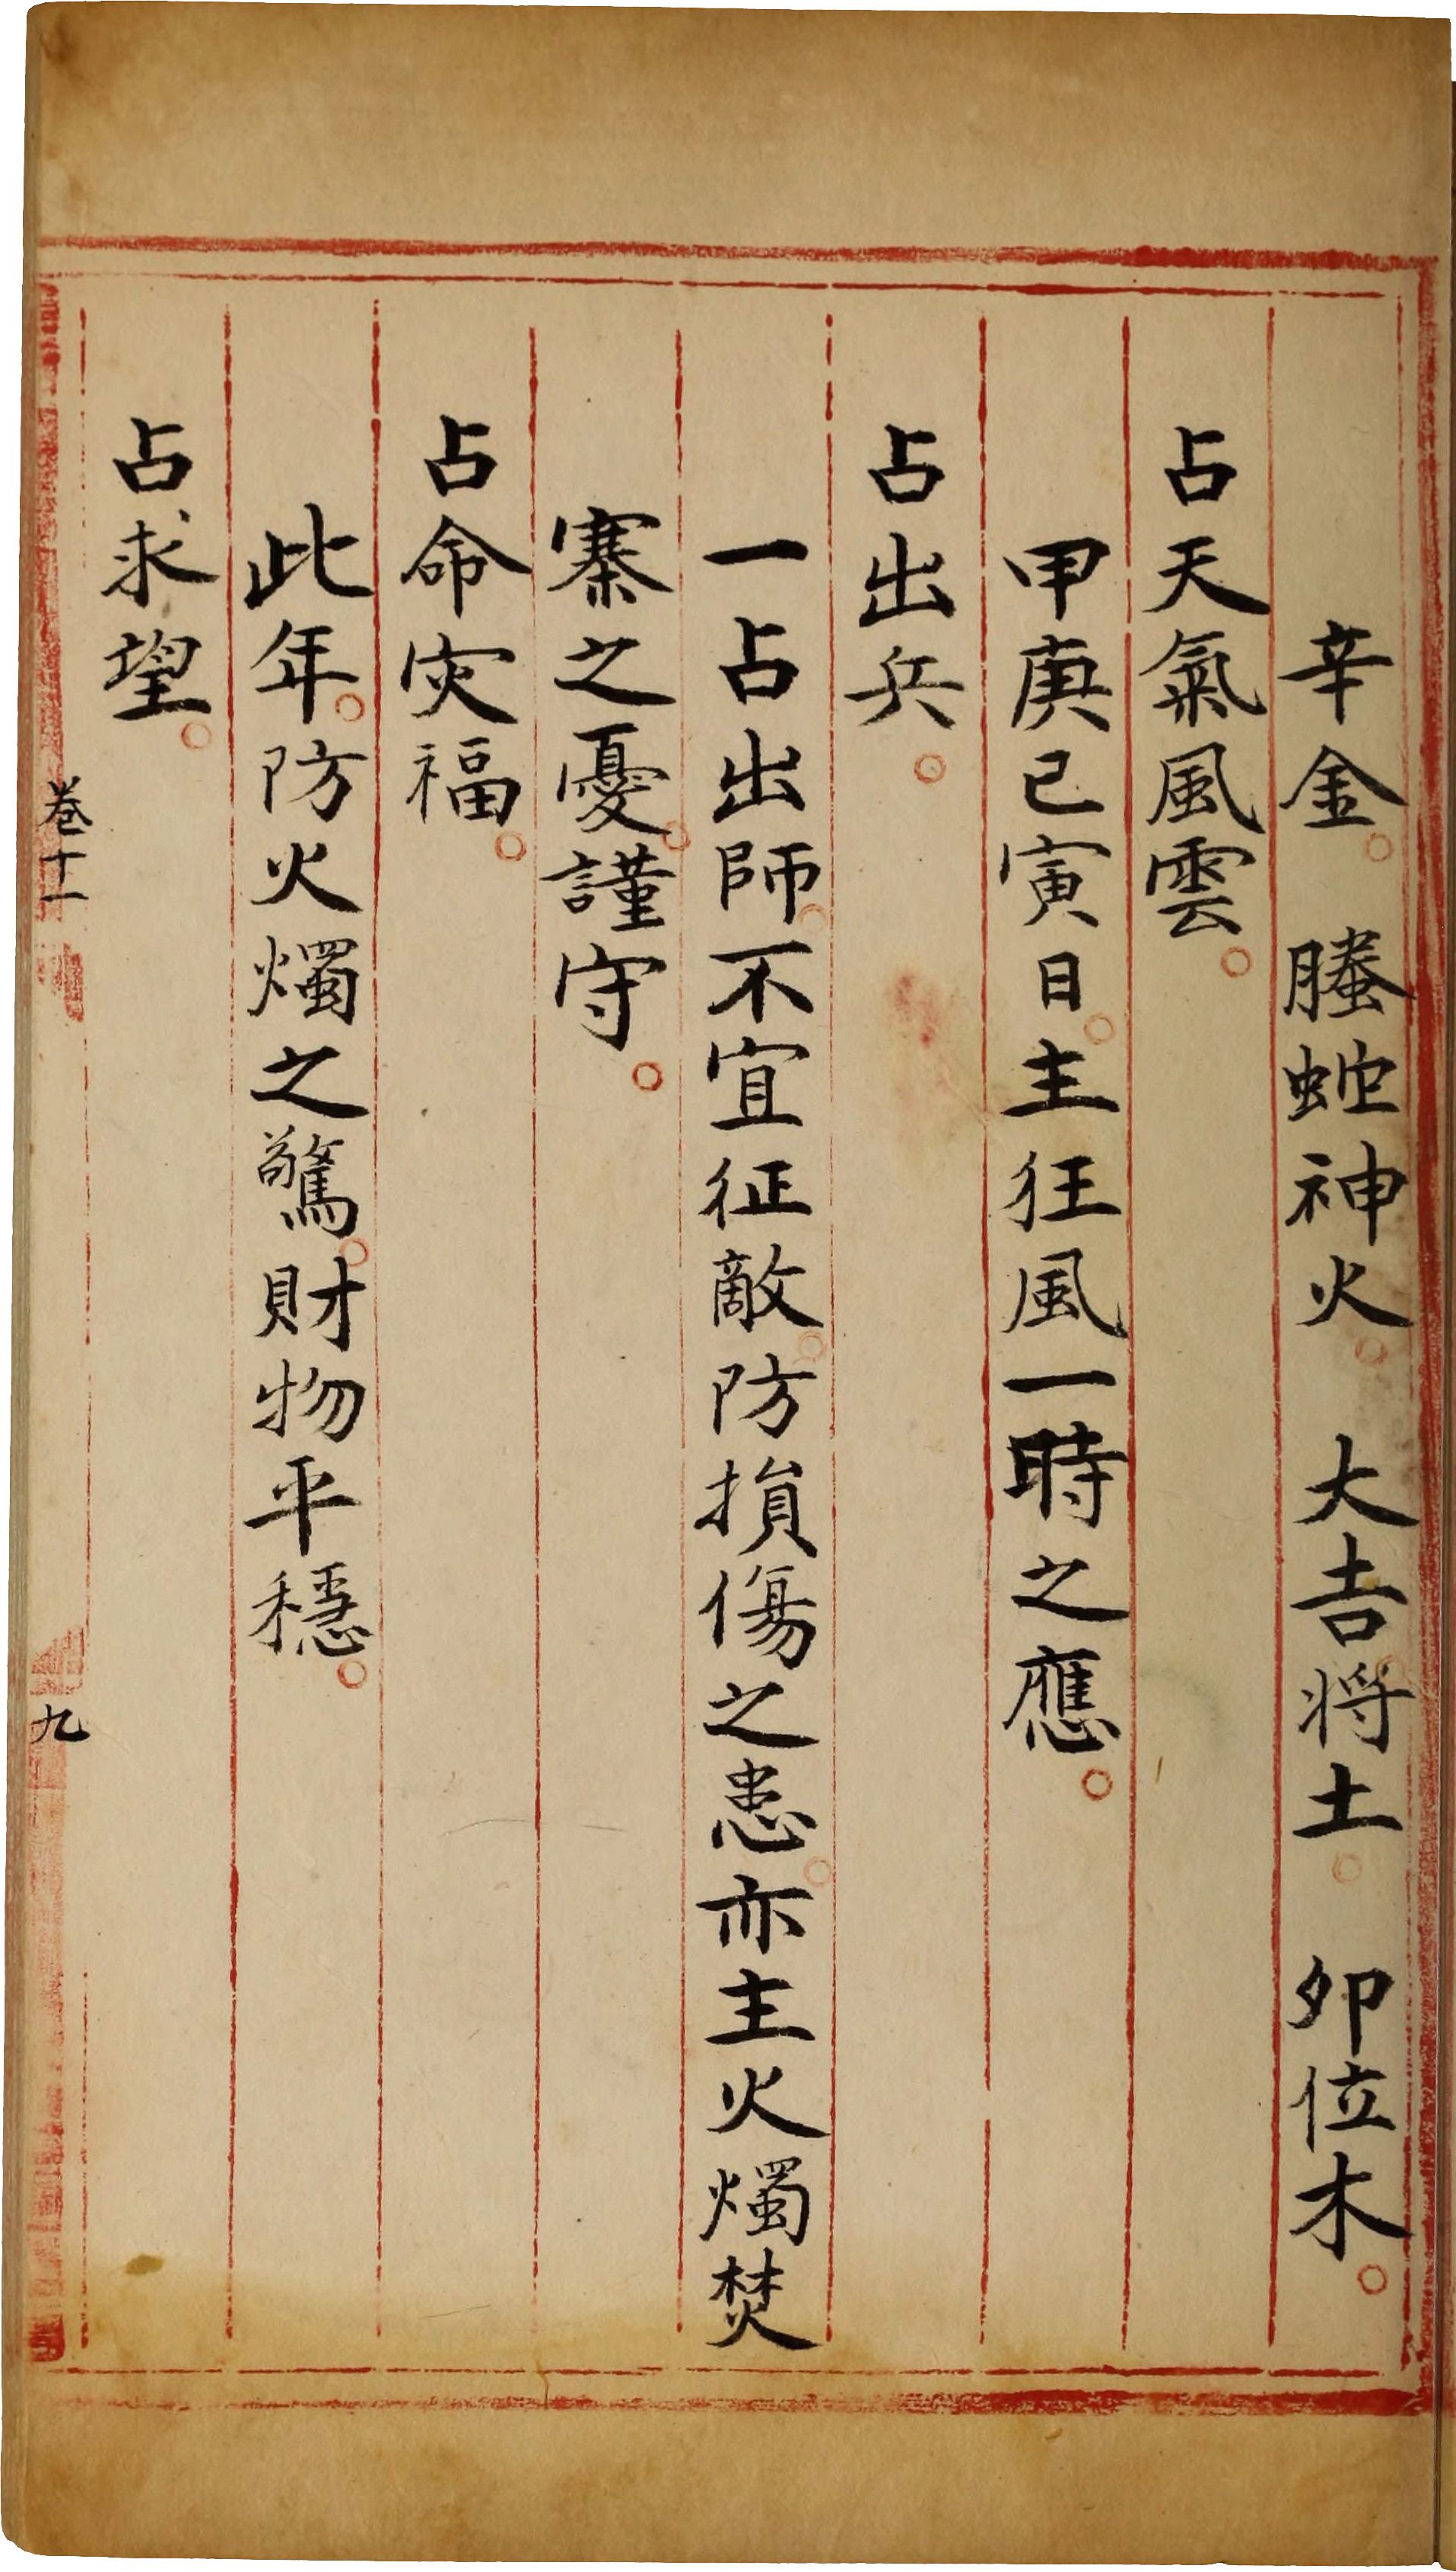 辛金。螣蛇神火。大吉将土。夘位木。
占天氣風雲。
甲庚己寅日。主狂風一時之應。
占出兵。
一占出師。不宜征敵。防損傷之患。亦主火燭焚
寨之憂。謹守。
占命灾福。
此年。防火燭之驚。財物平穩。
占求望。
卷十一
九